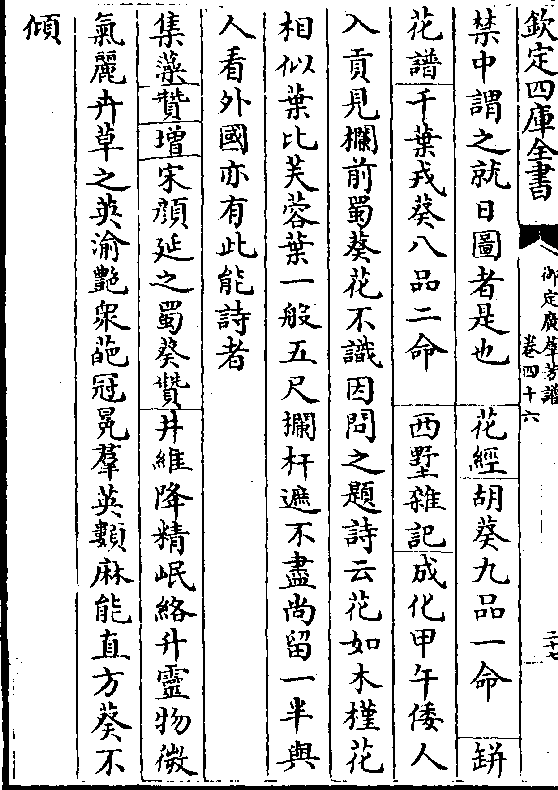 欽定四庫全書
御定廣羣芳譜
卷四十六
二十七
禁中謂之就日圖者是也 花經胡葵九品一命 缾
花譜千葉戎葵八品二命 西墅雜記成化甲午倭人
入貢見欄前蜀葵花不識因問之題詩云花如木槿花
相似葉比芙蓉葉一般五尺攔杆遮不盡尚留一半與
人看外國亦有此能詩者
集藻贊增宋顔延之蜀葵贊井維降精岷絡升靈物微
氣麗卉草之英渝艷衆葩冠冕羣英類麻能直方葵不
傾